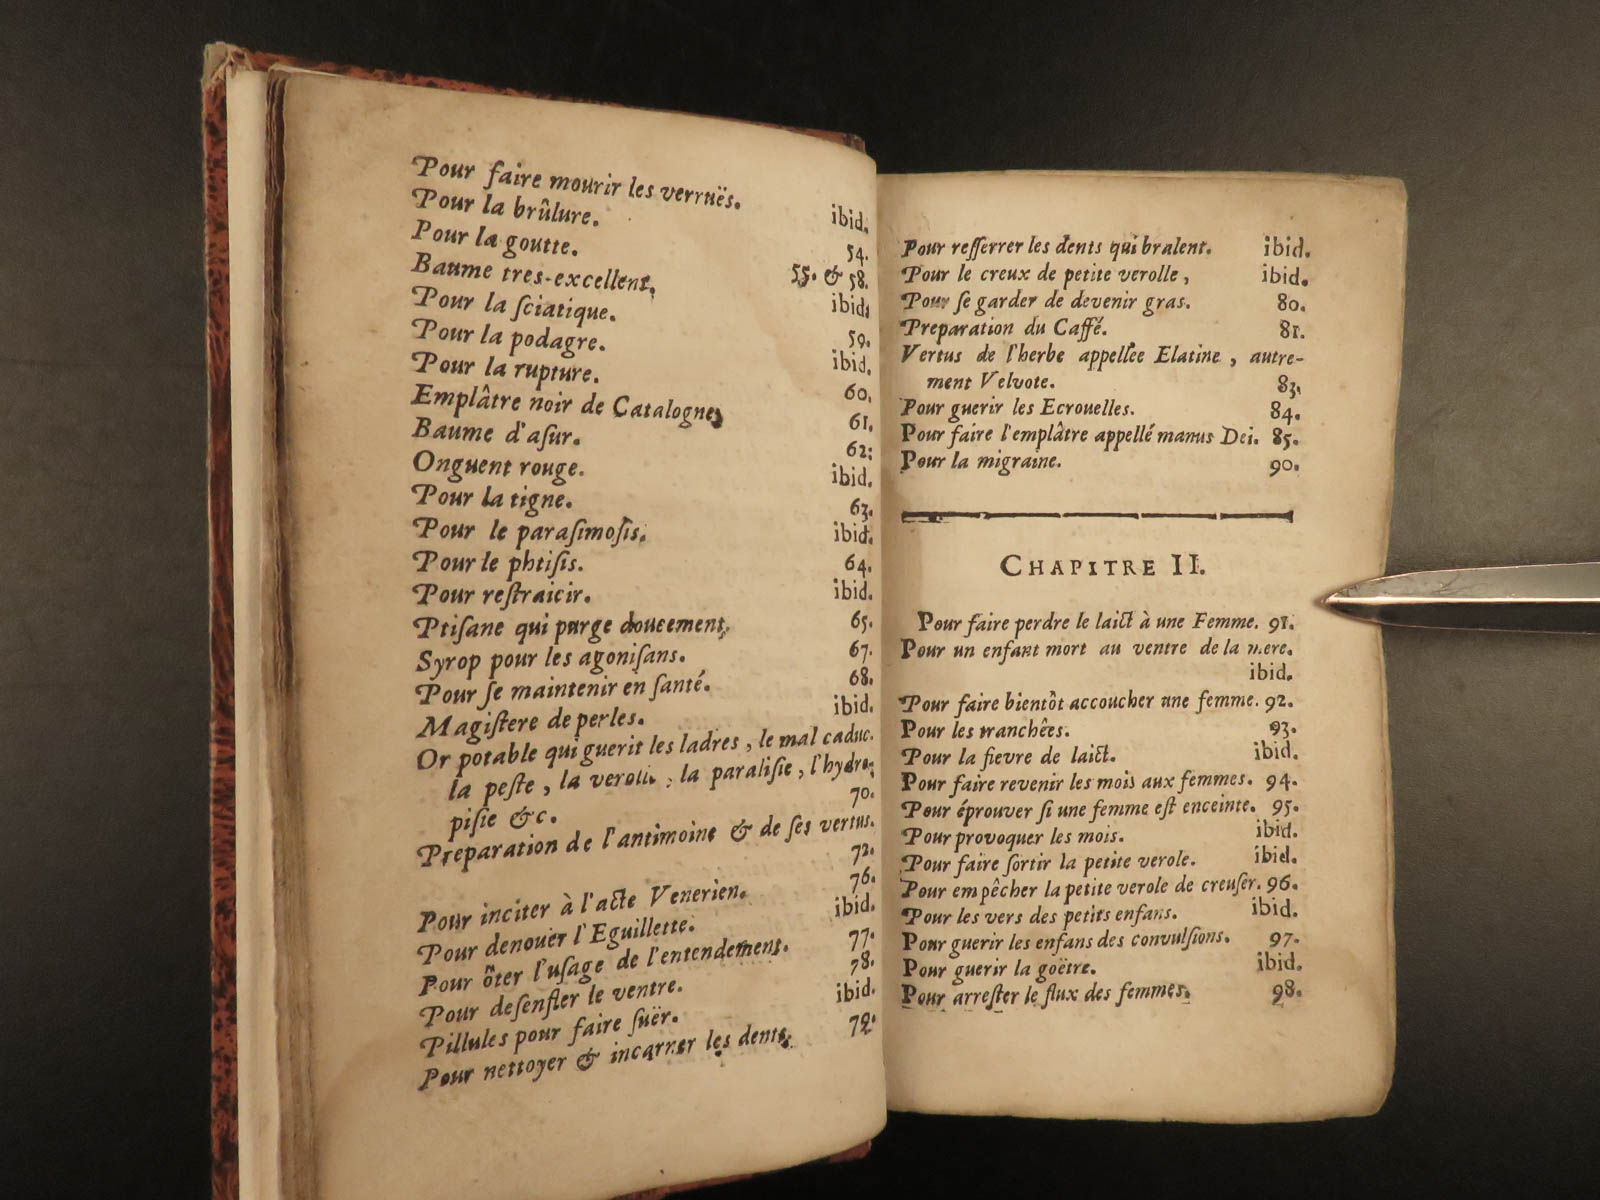 Pour faire mourir les verruës. ibid.
Pour la brûlure. 54.
Pour la goutte. 55. & 58.
Baume tres-excellent, ibid.
Pour la ſciatique. 59.
Pour la podagre. ibid.
Pour la rupture. 60.
Emplâtre noir de Catalogne, 61.
Baume d'aſur. 62.
Onguent rouge. ibid.
Pour la tigne. 63.
Pour le paraſimoſis. ibid.
Pour le phtiſis. 64.
Pour reſtraicir. ibid.
Ptiſane qui purge doucement, 65.
Syrop pour les agoniſans. 67.
Pour ſe maintenir en ſanté. 68.
Magiſtere de perles. ibid.
Or potable qui guerit les ladres, le mal caduc.
la peſte, la verolle, la paraliſie, l'hydro-
piſie &c. 70.
Preparation de l'antimoine & de ſes vertus.
72.
Pour inciter à l'acte Venerien. 76.
Pour denoüer l'Eguillette. ibid.
Pour ôter l'uſage de l'entendement. 77.
Pour deſenfler le ventre. 78.
Pillules pour faire ſuër. ibid.
Pour nettoyer & incarner les dents, 79.
Pour reſſerrer les dents qui bralent. ibid.
Pour le creux de petite verolle, ibid.
Pour ſe garder de devenir gras. 80.
Preparation du Caffé. 81.
Vertus de l'herbe appellée Elatine, autre-
ment Velvote. 83.
Pour guerir les Ecrouelles. 84.
Pour faire l'emplâtre appellé manus Dei. 85.
Pour la migraine. 90.
CHAPITRE II.
Pour faire perdre le laict à une Femme. 91.
Pour un enfant mort au ventre de la mere.
ibid.
Pour faire bientôt accoucher une femme. 92.
Pour les tranchées. 93.
Pour la fievre de laict. ibid.
Pour faire revenir les mois aux femmes. 94.
Pour éprouver ſi une femme eſt enceinte. 95.
Pour provoquer les mois. ibid.
Pour faire ſortir la petite verole. ibid.
Pour empêcher la petite verole de creuſer. 96.
Pour les vers des petits enfans. ibid.
Pour guerir les enfans des convulſions. 97.
Pour guerir la goëtre. ibid.
Pour arreſter le flux des femmes. 98.